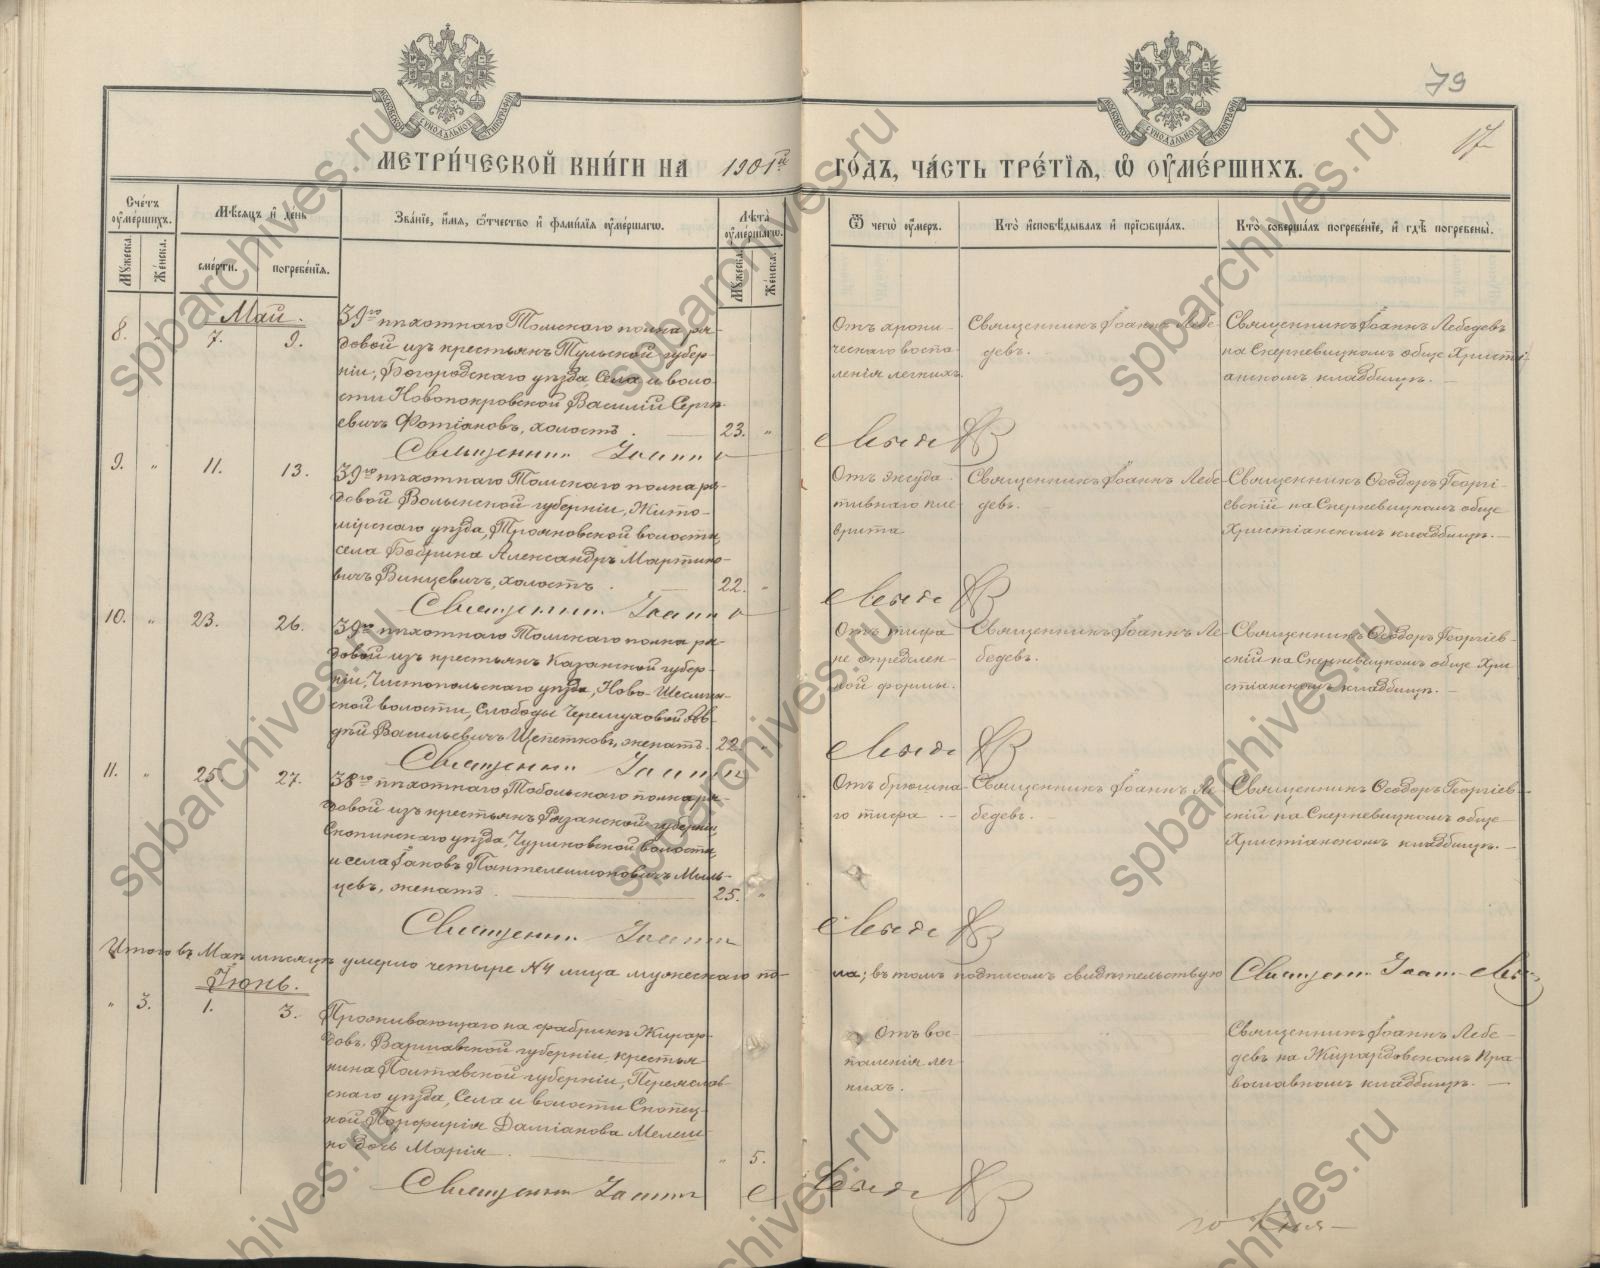 79
17
МЕТРИ́ЧЕСКОЙ КНИ́ГИ НА 1901й ГО́ДЪ, ЧА́СТЬ ТРЕ́ТІЯ, Ѡ҆ ОУ҆МЕ́РШИХЪ.
Сче́тъ оу҆ме́ршихъ.
Мꙋ́жеска.
Же́нска.
Мѣ́сяцъ и҆ де́нь
сме́рти.
погребе́нїѧ.
Зва́нїе, и҆́мѧ, ѻ҆́тчество и҆ фамі́лїѧ оу҆ме́ршагѡ.
Лѣ́та оу҆ме́ршагѡ.
Мꙋ́жеска.
Же́нска.
Ѿ чегѡ̀ оу҆́меръ.
Кто̀ и҆сповѣ́дывалъ и҆ прїѡбща́лъ.
Кто̀ соверша́лъ погребе́нїе, и҆ гдѣ̀ погребены̀.
Май.
8. " 7. 9.
39го пѣхотнаго Томскаго полка ря-
довой изъ крестьянъ Тульской губер-
ніи, Богородскаго уѣзда, Села и воло-
сти Новопокровской Василій Серге-
евичъ Фотіановъ, холостъ. 23. "
Отъ хрони-
ческаго воспа-
ленія легкихъ.
Священникъ Іоаннъ Лебе-
девъ.
Священникъ Іоаннъ Лебедевъ
на Скерневицкомъ обще Христі-
анскомъ кладбищѣ.
Священникъ Іоаннъ Лебедевъ
9. " 11. 13.
39го пѣхотнаго Томскаго полка ря-
довой Волынской губерніи, Жито-
мірскаго уѣзда, Трояновской волости,
села Бобрика Александръ Мартино-
вичъ Винцевичъ, холостъ. 22. "
Отъ эксуда-
тивнаго пле-
врита
Священникъ Іоаннъ Лебе-
девъ.
Священникъ Ѳеодоръ Георгі-
евскій на Скерневицкомъ обще
Христіанскомъ кладбищѣ.
Священникъ Іоаннъ Лебедевъ
10. " 23. 26.
39го пѣхотнаго Томскаго полка ря-
довой изъ крестьянъ Казанской губер-
ніи, Чистопольскаго уѣзда, Ново-Шешмин-
ской волости, Слободы Черемуховой Ав-
дѣй Васильевичъ Щепетковъ, женатъ. 22. "
Отъ тифа
не опредѣлен-
ной формы.
Священникъ Іоаннъ Ле-
бедевъ.
Священникъ Ѳеодоръ Георгіев-
скій на Скерневицкомъ обще Хри-
стіанскомъ кладбищѣ.
Священникъ Іоаннъ Лебедевъ
11. " 25. 27.
38го пѣхотнаго Тобольскаго полка ря-
довой изъ крестьянъ Рязанской губерніи,
Скопинскаго уѣзда, Чуриковской волости,
и села Іаковъ Пантелеимоновичъ Мыль-
цевъ, женатъ. 25. "
Отъ брюшна-
го тифа.
Священникъ Іоаннъ Ле-
бедевъ.
Священникъ Ѳеодоръ Георгіев-
скій на Скерневицкомъ обще
Христіанскомъ кладбищѣ.
Священникъ Іоаннъ Лебедевъ
Итого въ Маѣ мѣсяцѣ умерло четыре №4 лица мужескаго по-
ла; въ томъ подписомъ свидѣтельствую Священникъ Іоаннъ Лебедевъ
Іюнь.
" 3. 1. 3.
Проживающаго на фабрикѣ Жирар-
довъ, Варшавской губерніи, крестья-
нина Полтавской губерніи, Переяслов-
скаго уѣзда, Села и волости Снопец-
кой Порфирія Даміанова Мелеш-
ко дочь Марія. " 5.
Отъ вос-
паленія лег-
кихъ.
Священникъ Іоаннъ Лебе-
девъ на Жирардовскомъ Пра-
вославномъ кладбищѣ.
Священникъ Іоаннъ Лебедевъ
spbarchives.ru